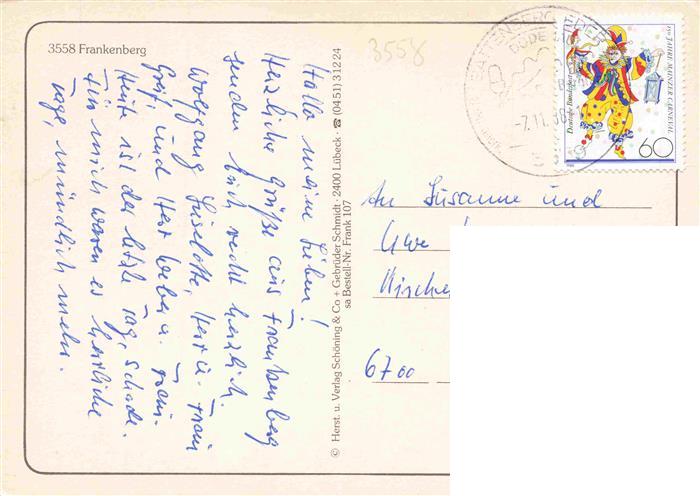 3558 Frankenberg
3558
Hallo meine Lieben!
Herzliche Grüße aus Frankenberg
senden Euch recht herzlich
Wolfgang Liselotte, Herr u. Frau
Graf, und Herr Weber u. Frau.
Heute ist der letzte Tag, schade.
Für mich waren es herrliche
Tage, mündlich mehr.
© Herst. u. Verlag Schöning & Co + Gebrüder Schmidt · 2400 Lübeck · ☎ (04 51) 3 12 24
sa Bestell-Nr. Frank 107
BATTENBERG
EDER
-7.11.88
Deutsche Bundespost
150 JAHRE MAINZER CARNEVAL
60
An Susanne und
Uwe
6700